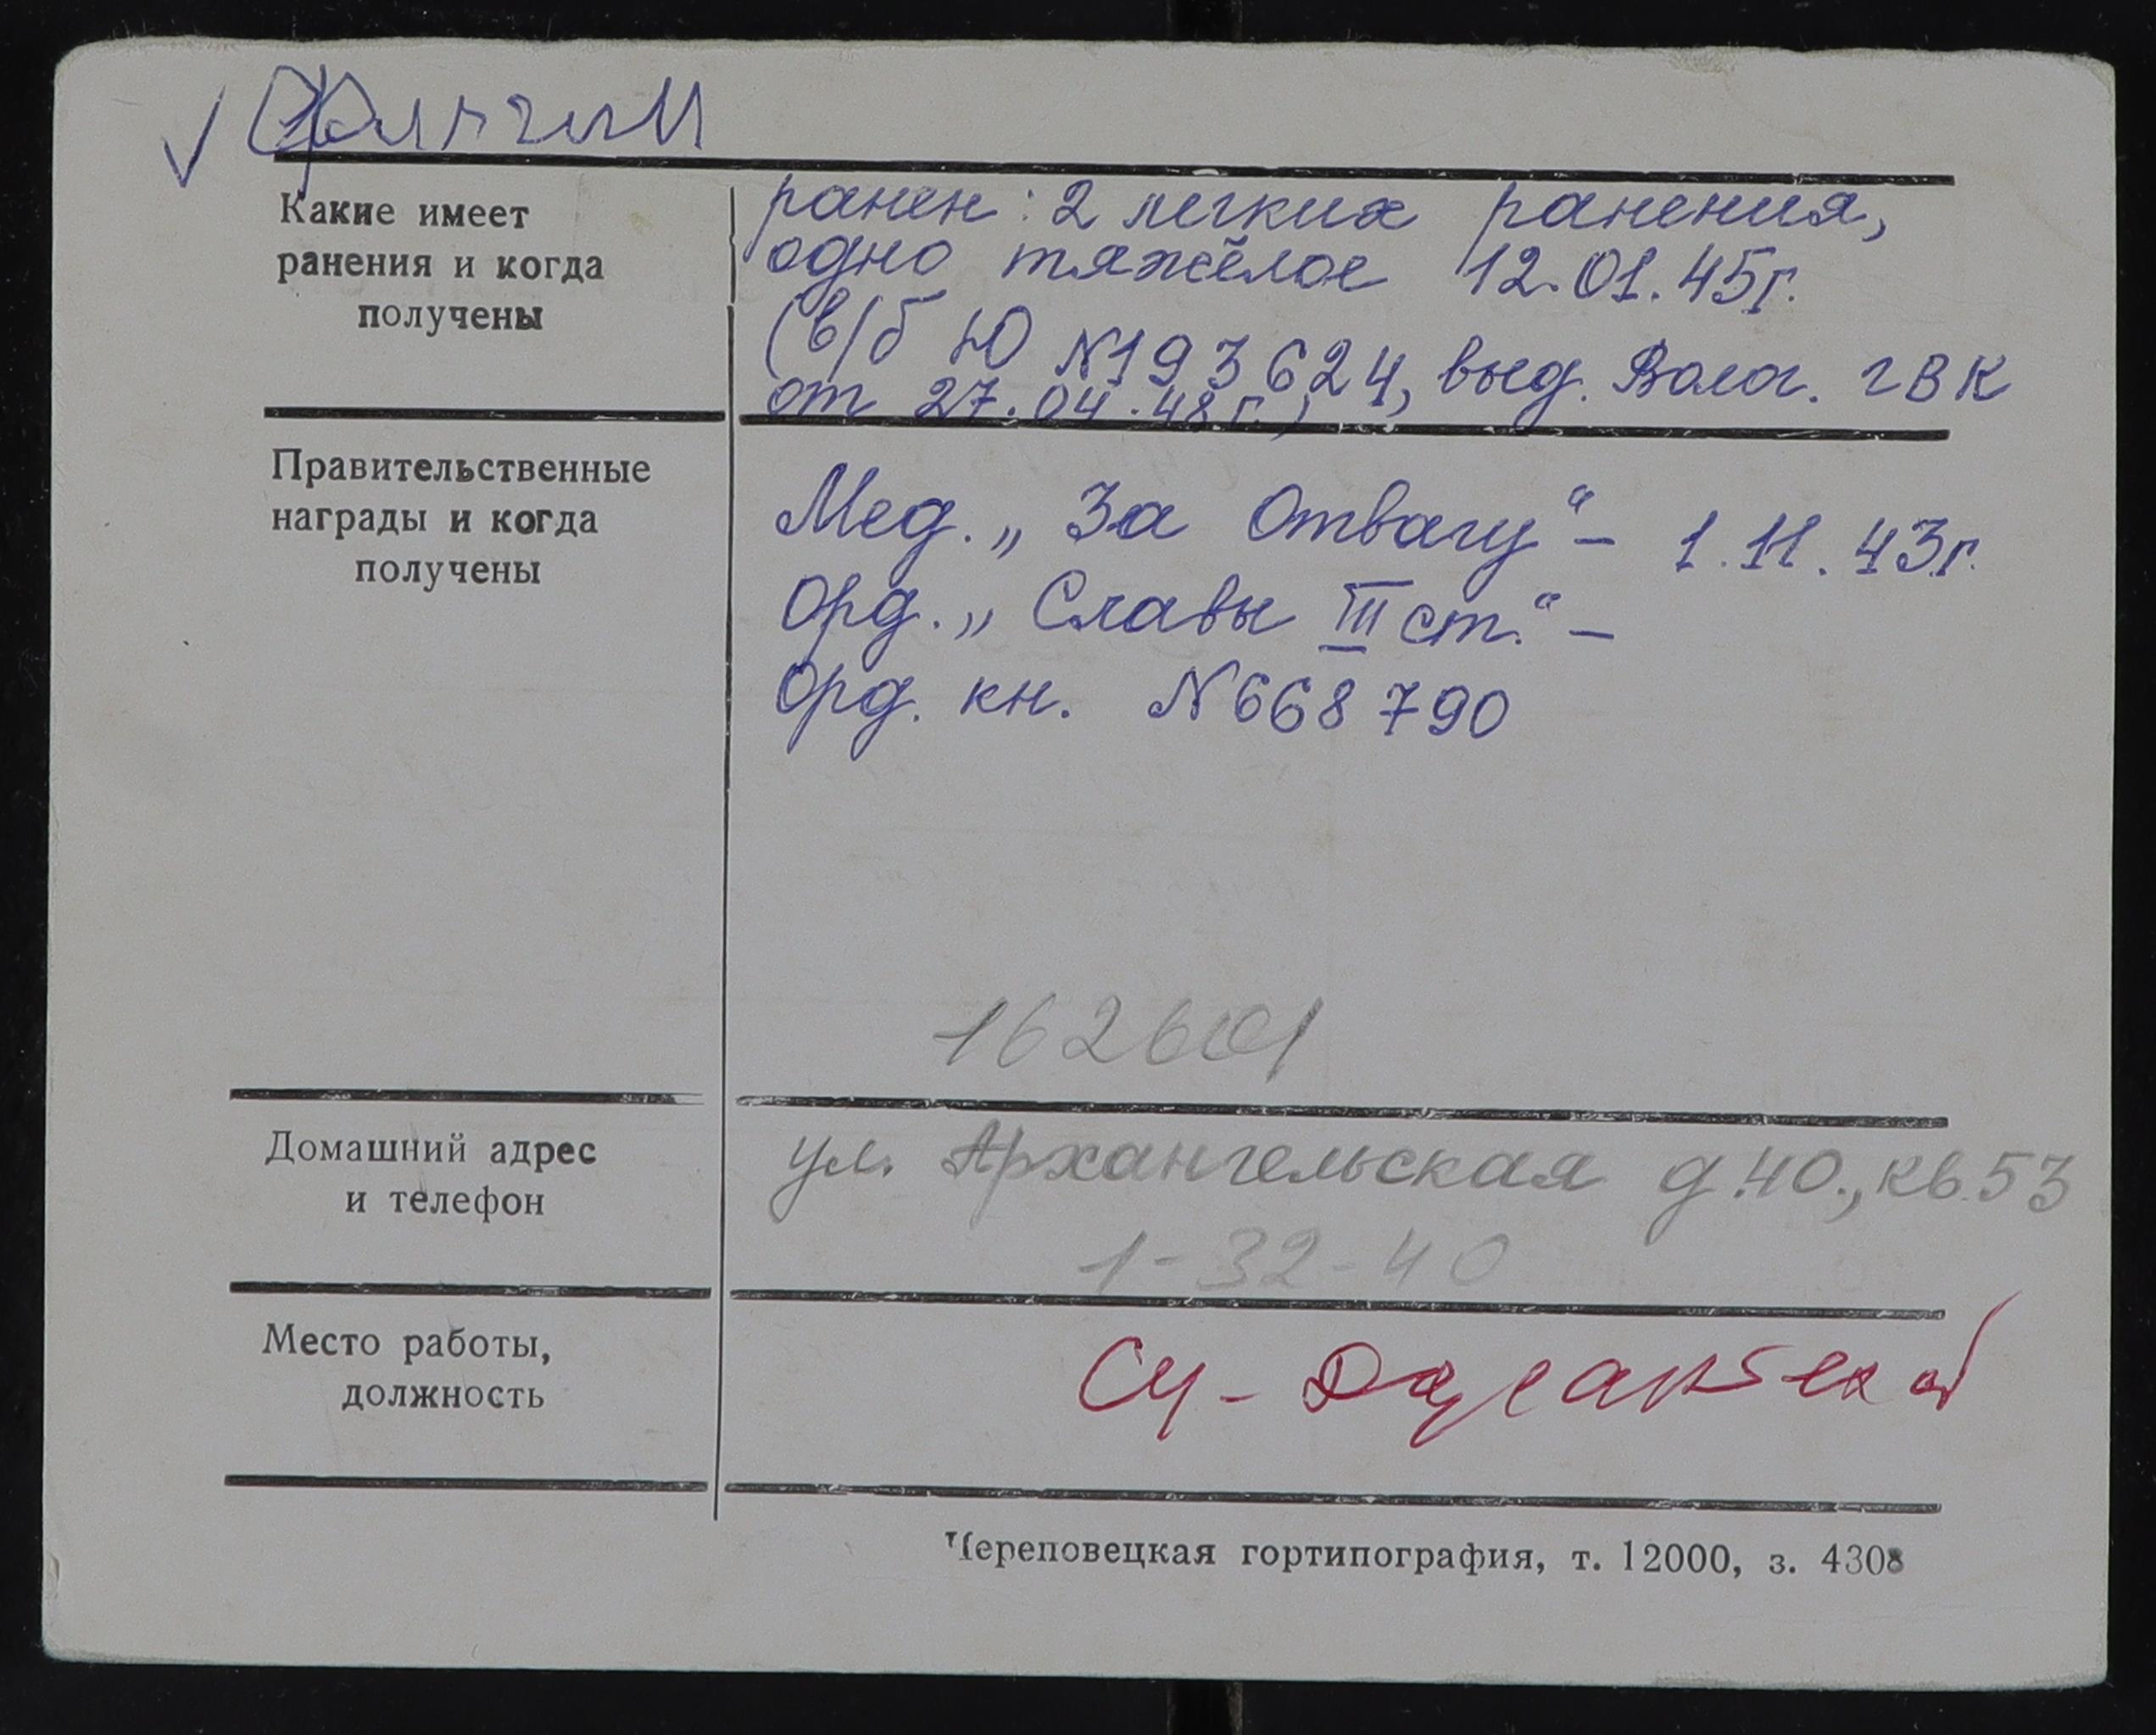 Какие имеет
ранения и когда
получены
ранен: 2 легких ранения,
одно тяжёлое 12.01.45г.
(в/б Ю №193624, выд. Волог. гВК
от 27.04.48г.)
Правительственные
награды и когда
получены
Мед. „За Отвагу“ – 1.11.43г.
Орд. „Славы III ст.“ –
Орд. кн. №668790
162601
Домашний адрес
и телефон
ул. Архангельская д.40., кв.53
1-32-40
Место работы,
должность
Череповецкая гортипография, т. 12000, з. 4308